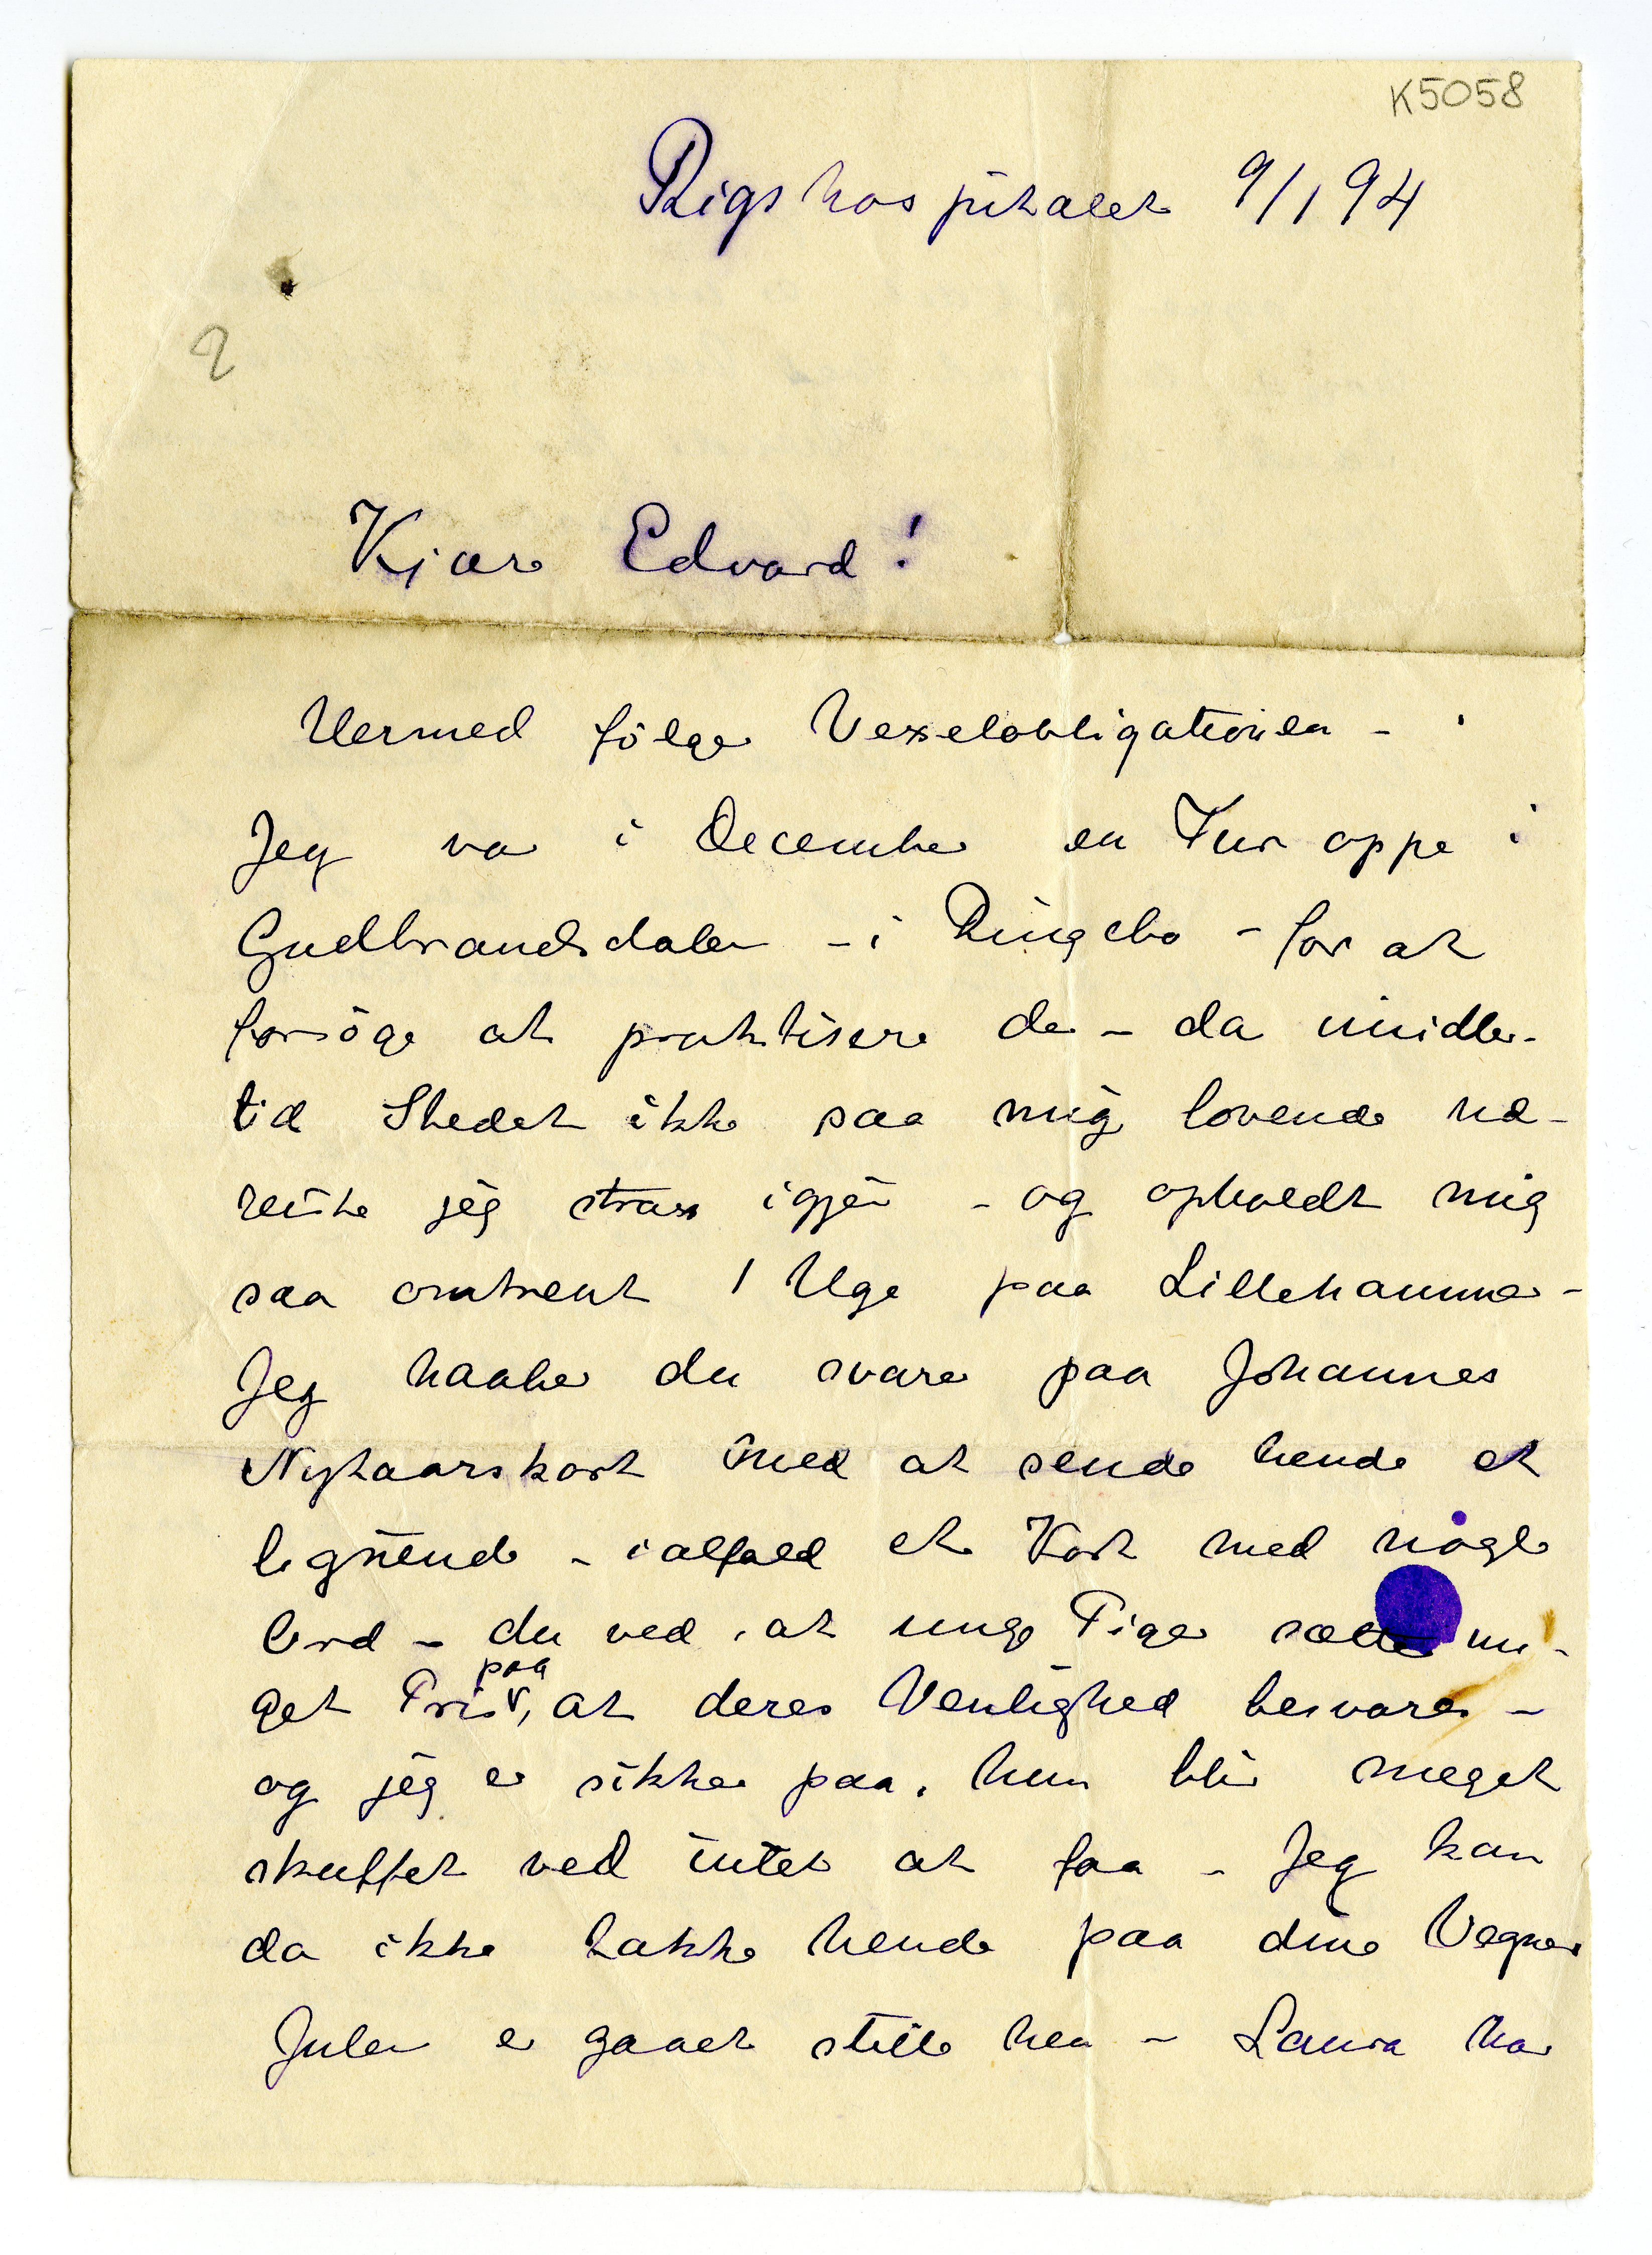 K5058
Rigshospitalet 9/1 94
2
Kjære Edvard!
Hermed følger Vexelobligationen –
Jeg var i December en Tur oppe i
Gudbrandsdalen – i Ringebo – for at
forsøge at praktisere der – da imidler-
tid Stedet ikke saa mig lovende ud –
reiste jeg strax igjen – og opholdt mig
saa omtrent 1 Uge paa Lillehammer –
Jeg haaber du svarer paa Johannes
Nytaarskort med at sende hende et
lignende – ialfald et Kort med nogle
Ord – du ved, at unge Piger sætter me-
get Pris paa, at deres Venlighed besvares –
og jeg er sikker paa, hun blir meget
skuffet ved intet at faa – Jeg kan
da ikke takke hende paa dine Vegner
Julen er gaaet stille hen – Laura har